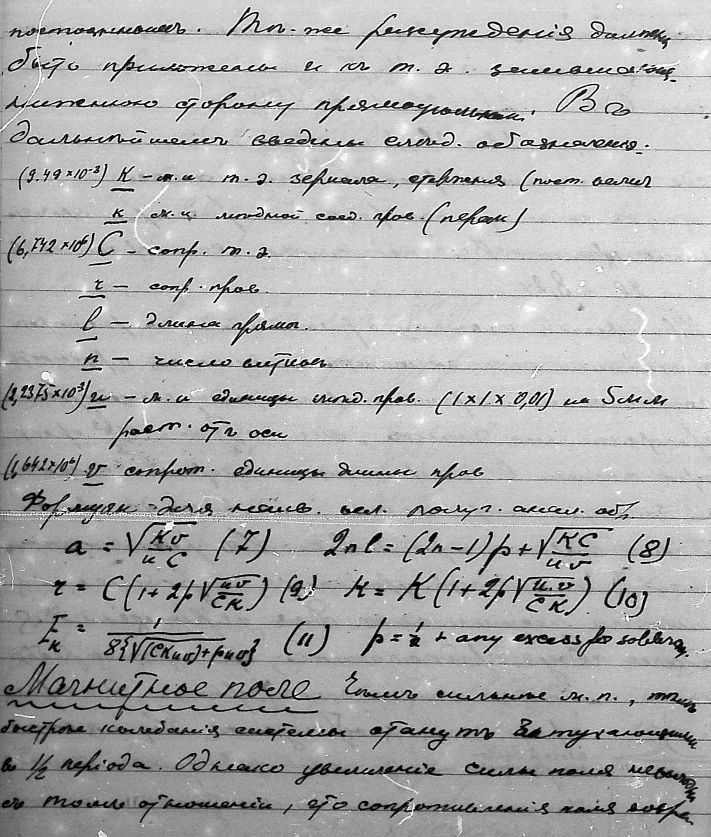 постояннымъ. Тѣ-же разсужденія должны
быть приложены и къ т. э.
сторону В
дальнѣйшемъ введены слѣд. обозначенія:
(9.49×10⁻³) K – м.и т. э. зеркала, стержня (пост. велич
к м.и. мѣдной соед. пров. (перем)
(6,742×10⁶) C – сопр. т. э.
r – сопр. пров.
l – длина прямо.
n – число витковъ
(2,2375×10⁻³) u – м. и единицы соед. пров. (1×1×0,01) на 5мм
раст. отъ оси
(1,642×10⁶) v сопрот. единицы длины пров
Формулы для наив. вел. получ.
a = √(Kv/uC) (7) 2nl = (2n–1)p + √(KC/uv) (8)
r = C(1+2p√(uv/CK)) (9) k = K(1+2p√(u.v/CK)) (10)
F_k = 1/8{√(CKuv)+puv} (11) p = ½ + any excess for soldering.
Магнитное поле Чѣмъ сильнѣе м. п., тѣмъ
быстрѣе колебанія системы станутъ затухающими
въ ½ періода. Однако увеличеніе силы поля
въ томъ отношеніи, что сопротивленія